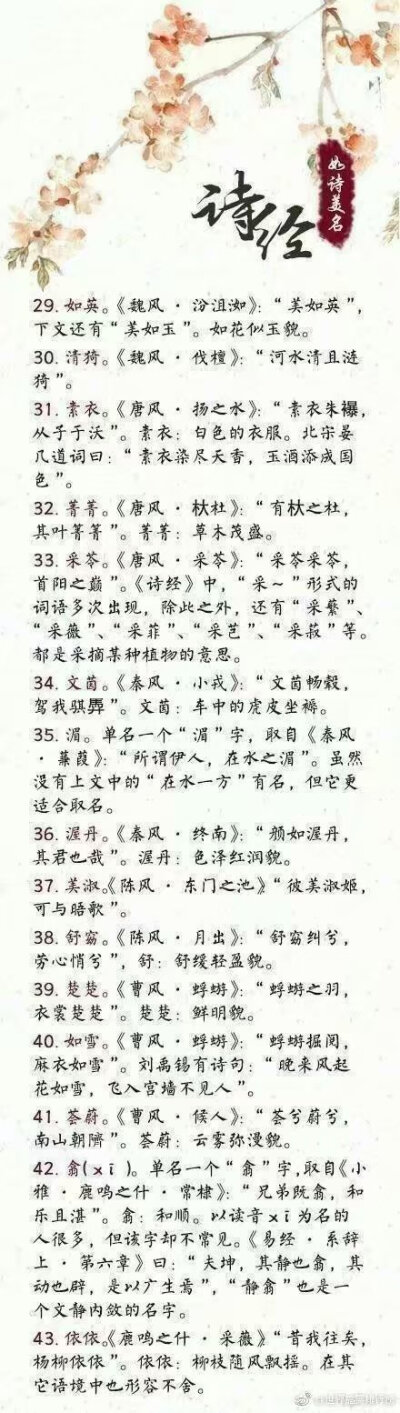 诗经
如诗美名
29. 如英。《魏风·汾沮洳》：“美如英”，
下文还有“美如玉”。如花似玉貌。
30. 清猗。《魏风·伐檀》：“河水清且涟
猗”。
31. 素衣。《唐风·扬之水》：“素衣朱襮，
从子于沃”。素衣：白色的衣服。北宋晏
几道词曰：“素衣染尽天香，玉酒添成国
色”。
32. 菁菁。《唐风·杕杜》：“有杕之杜，
其叶菁菁”。菁菁：草木茂盛。
33. 采苓。《唐风·采苓》：“采苓采苓，
首阳之巅”。《诗经》中，“采~”形式的
词语多次出现，除此之外，还有“采蘩”、
“采薇”、“采菲”、“采芑”、“采菽”等。
都是采摘某种植物的意思。
34. 文茵。《秦风·小戎》：“文茵畅毂，
驾我骐馵”。文茵：车中的虎皮坐褥。
35. 湄。单名一个“湄”字，取自《秦风
·蒹葭》：“所谓伊人，在水之湄”。虽然
没有上文中的“在水一方”有名，但它更
适合取名。
36. 渥丹。《秦风·终南》：“颜如渥丹，
其君也哉”。渥丹：色泽红润貌。
37. 美淑。《陈风·东门之池》“彼美淑姬，
可与晤歌”。
38. 舒窈。《陈风·月出》：“舒窈纠兮，
劳心悄兮”，舒：舒缓轻盈貌。
39. 楚楚。《曹风·蜉蝣》：“蜉蝣之羽，
衣裳楚楚”。楚楚：鲜明貌。
40. 如雪。《曹风·蜉蝣》：“蜉蝣掘阅，
麻衣如雪”。刘禹锡有诗句：“晚来风起
花如雪，飞入宫墙不见人”。
41. 荟蔚。《曹风·候人》：“荟兮蔚兮，
南山朝隮”。荟蔚：云雾弥漫貌。
42. 翕(xī)。单名一个“翕”字，取自《小
雅·鹿鸣之什·常棣》：“兄弟既翕，和
乐且湛”。翕：和顺。以读音xī为名的
人很多，但该字却不常见。《易经·系辞
上·第六章》曰：“夫坤，其静也翕，其
动也辟，是以广生焉”，“静翕”也是一
个文静内敛的名字。
43. 依依。《鹿鸣之什·采薇》“昔我往矣，
杨柳依依”。依依：柳枝随风飘摇。在其
它语境中也形容不舍。